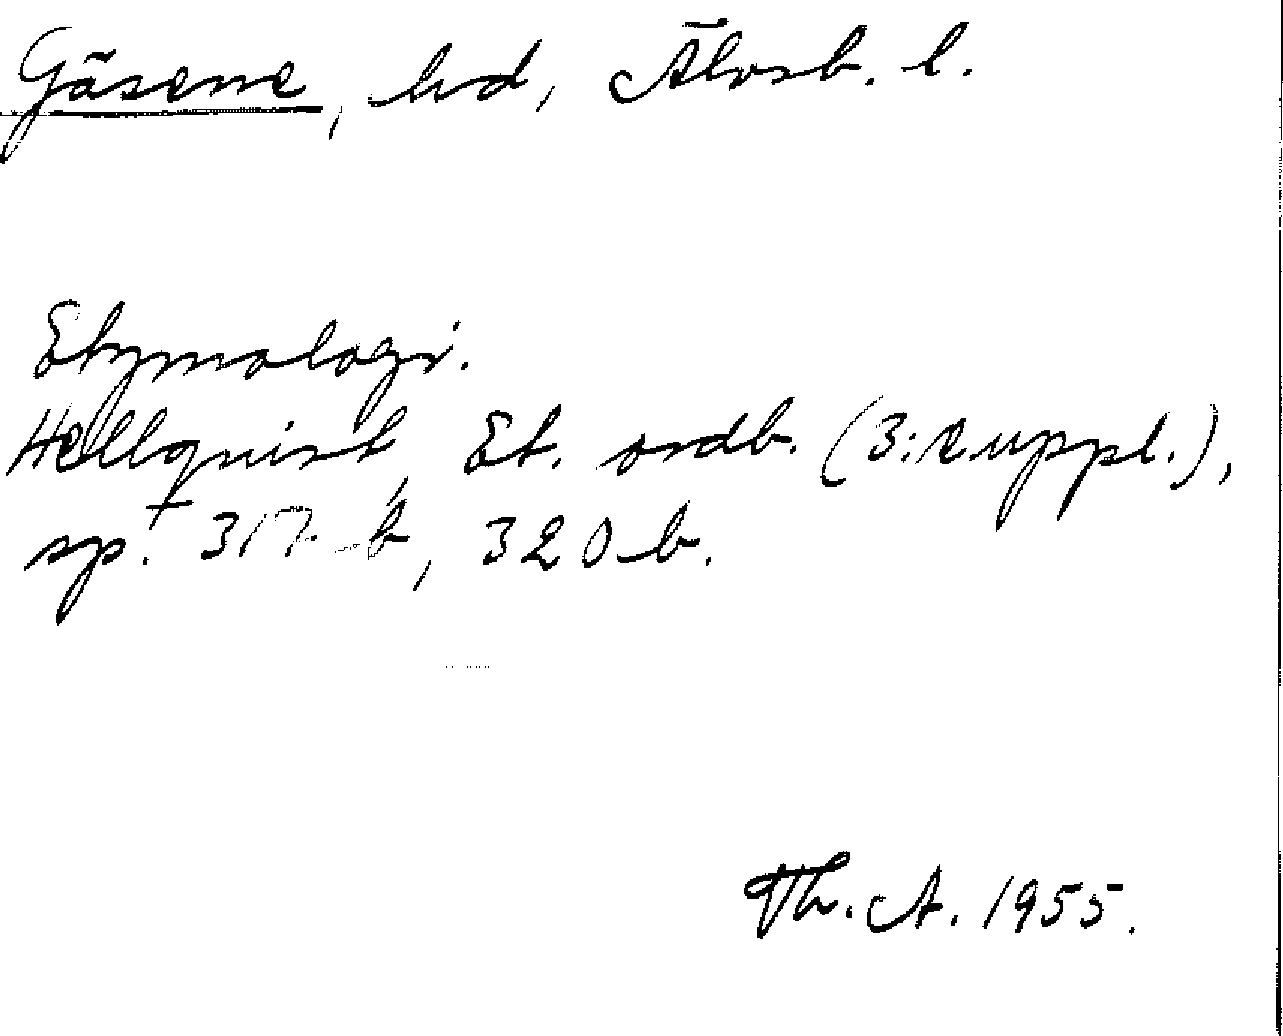 Gäsene, hd, Älvsb. l.
Etymologi.
Hellquist, Et. ordb. (3:e uppl.),
sp. 317 b, 320 b.
Th. A. 1955.